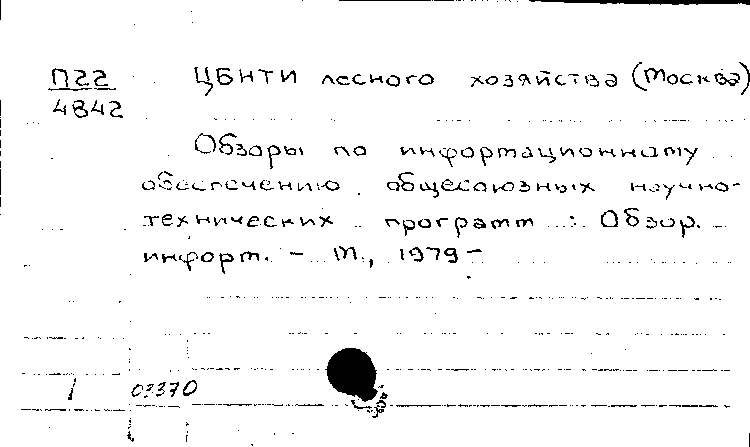 П22 ЦБНТИ лесного хозяйства (Москва)
4842
Обзоры по информационному
обеспечению общесоюзных научно-
технических программ : Обзор.
информ. - М., 1979 -
1 03370